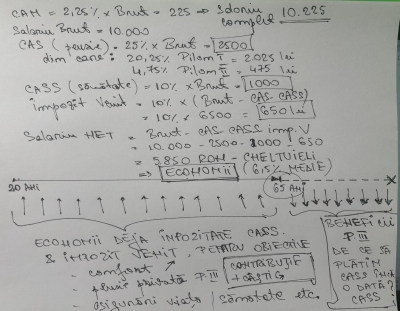 CAM = 2,25% × Brut = 225 => Salariu complet 10.225
Salariu Brut = 10.000
CAS (pensie) = 25% × Brut = 2500
din care: 20,25% Pilon I = 2025 lei
4,75% Pilon II = 475 lei
CASS (sănătate) = 10% × Brut = 1000
Impozit Venit = 10% × (Brut - CAS - CASS)
= 10% × 6500 = 650 lei
Salariu NET = Brut - CAS - CASS - imp. V
= 10.000 - 2500 - 1000 - 650
= 5.850 RON - CHELTUIELI
=> ECONOMII (6,5% MEDIE)
20 ANI
65 ANI
ECONOMII DEJA IMPOZITATE CASS
& IMPOZIT VENIT, PENTRU OBIECTIVE
- comfort
- pensie privată P. III
- asigurări viață / sănătate etc.
CONTRIBUȚIE
+ CÂȘTIG
BENEFICII
P. III
DE CE SĂ
PLĂTIM
CASS ÎNCĂ
O DATĂ?
CASS